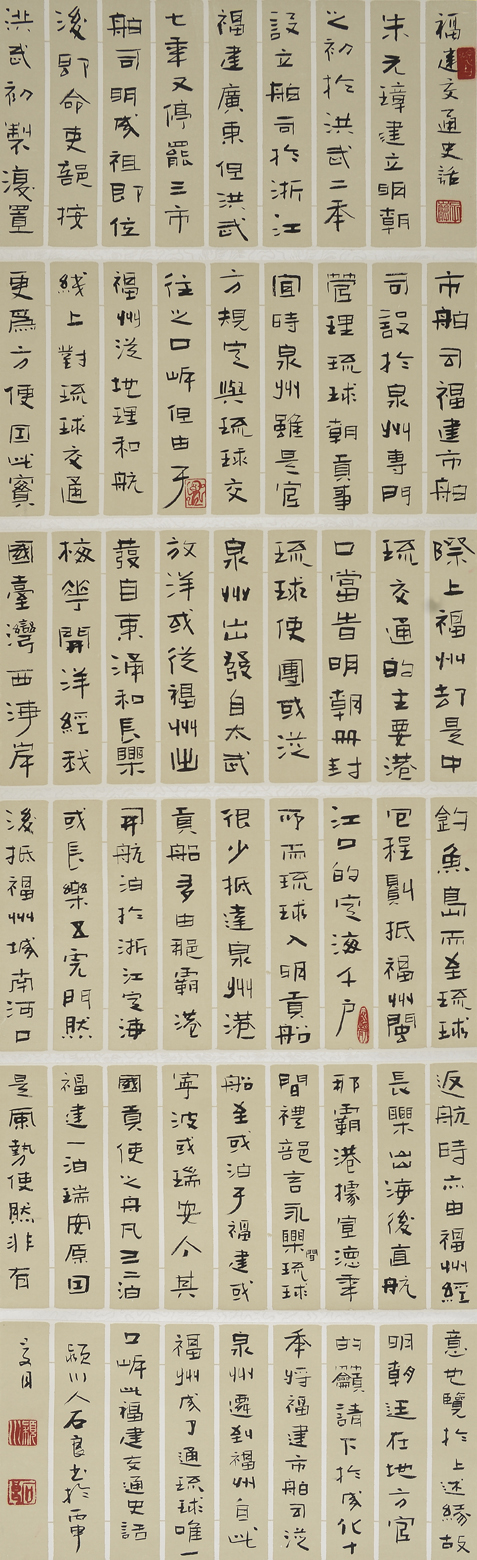 福建交通史話
朱元璋建立明朝
之初於洪武二年
設立舶司於浙江
福建廣東但洪武
七年又停罷三市
舶司明成祖即位
後即命吏部按
洪武初製復置
市舶司福建市舶
司設於泉州專門
管理琉球朝貢事
宜時泉州雖是官
方規定與琉球交
往之口岸但由于
福州從地理和航
綫上對琉球交通
更爲方便因此實
際上福州却是中
琉交通的主要港
口當昔明朝冊封
琉球使團或從
泉州出發自太武
放洋或從福州出
發自東涌和長樂
梅花開洋經我
國臺灣西海岸
釣魚島而至琉球
回程則抵福州閩
江口的定海千户
所而琉球入明貢船
很少抵達泉州港
貢船多由那霸港
開航泊於浙江定海
或長樂五虎門然
後抵福州城南河口
返航時亦由福州經
長樂出海後直航
那霸港據宣德年
間禮部言永樂間琉球
船至或泊于福建或
寧波或瑞安今其
國貢使之舟凡三二泊
福建一泊瑞安原因
是風勢使然非有
意也覽於上述緣故
明朝廷在地方官
的籲請下於成化十
年將福建市舶司從
泉州遷到福州自此
福州成了通琉球唯一
口岸此福建交通史話
潁川人石良書於丙申
夏月